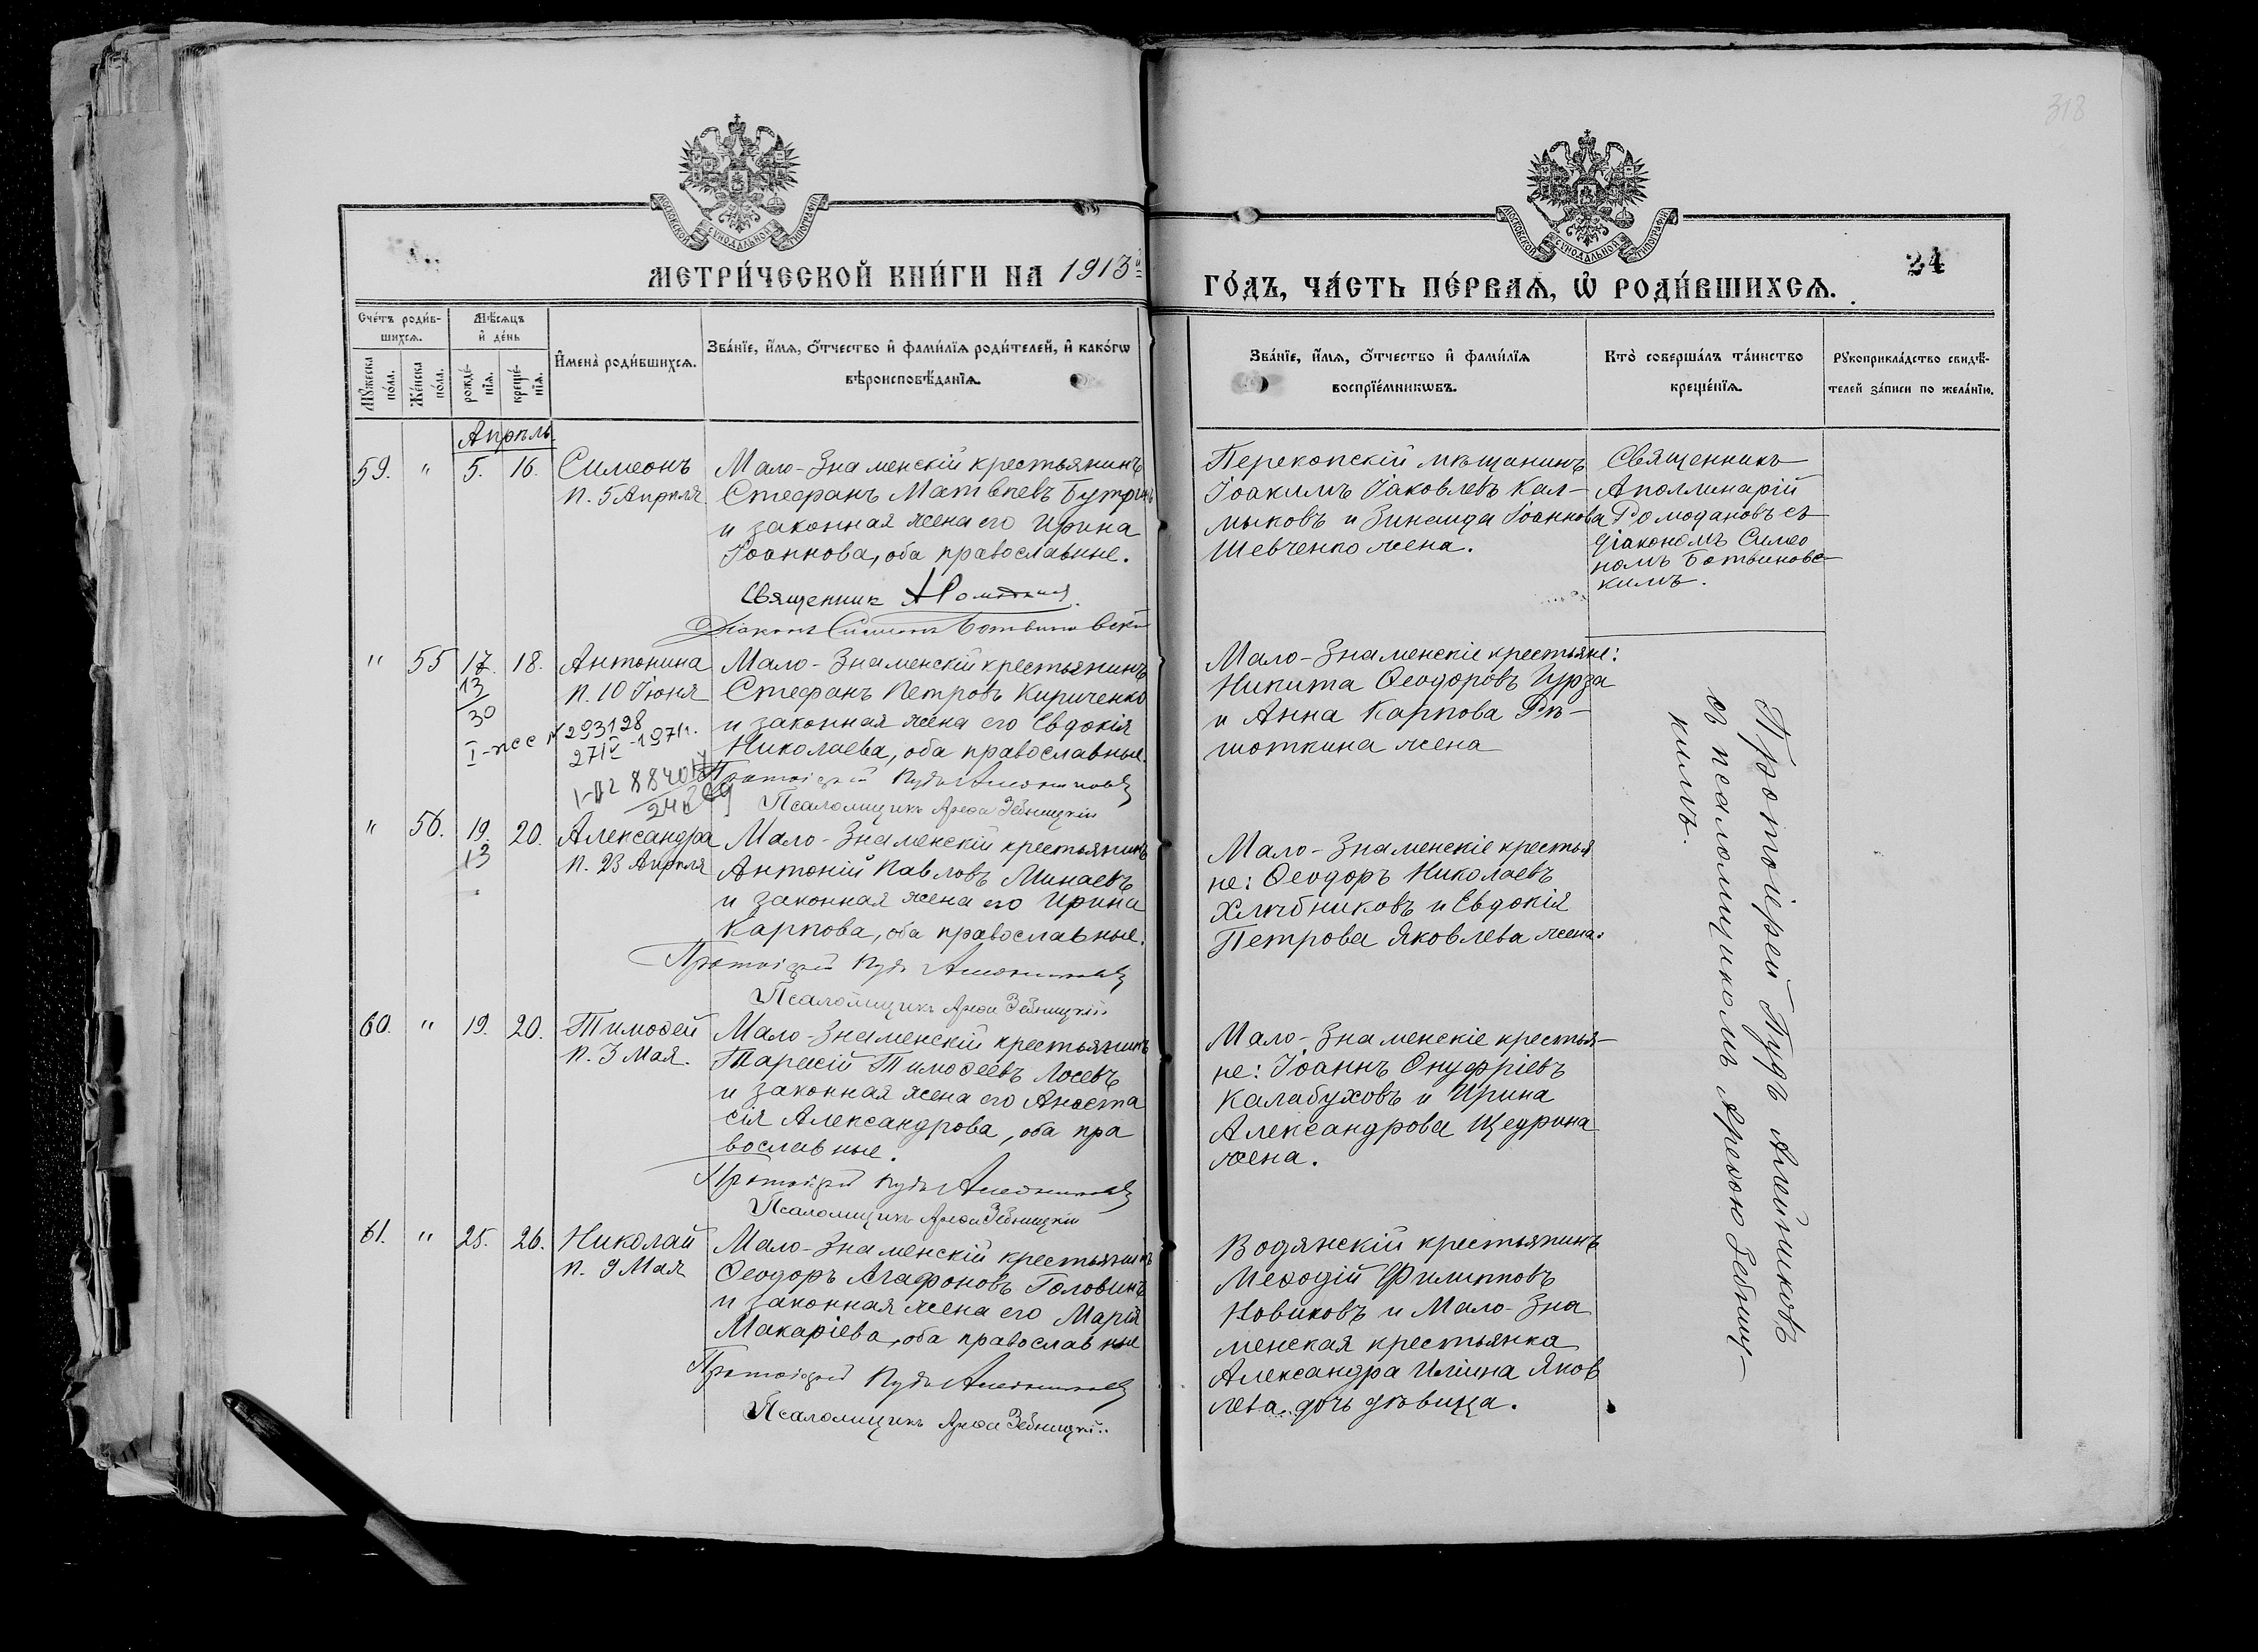 318
МОСКОВСКОЙ СѴНОДАЛЬНОЙ ТИПОГРАФІИ
МОСКОВСКОЙ СѴНОДАЛЬНОЙ ТИПОГРАФІИ
МЕТРИ́ЧЕСКОЙ КНИ́ГИ НА 1913й
ГО́ДЪ, ЧА́СТЬ ПЕ́РВАѦ, Ѡ҆ РОДИ́ВШИХСѦ.
24
Сче́тъ роди́в-
шихсѧ.
Мѣ́сѧцъ
и҆ де́нь
Мꙋ́жеска по́ла.
Же́нска по́ла.
рожде́-
нїѧ.
креще́-
нїѧ.
И҆мена̀ роди́вшихсѧ.
Зва́нїе, и҆́мѧ, ѻ҆́тчество и҆ фами́лїѧ роди́телей, и҆ како́гѡ
вѣроисповѣ́данїѧ.
Зва́нїе, и҆́мѧ, ѻ҆́тчество и҆ фами́лїѧ
воспрїе́мникѡвъ.
Кто̀ соверша́лъ та́инство
креще́нїѧ.
Рꙋкоприкла́дство свидѣ́-
телей за́писи по жела́нїю.
Апрѣль.
59. " 5. 16. Симеонъ
п. 5 Апрѣля
Мало-Знаменскій крестьянинъ
Стефанъ Матвѣевъ Бутринъ
и законная жена его Ирина
Іоаннова, оба православные.
Священник
Діаконъ Симеонъ Ботвиновскій
Перекопскій мѣщанинъ
Іоакимъ Іаковлевъ Кал-
мыковъ и Зинаида Іоаннова
Шевченко жена.
Священникъ
Аполлинарій
Ромодановъ съ
діакономъ Симео
номъ Ботвиновс-
кимъ.
" 55 17. 18. Антонина
п. 10 Іюня
13
30
293128
27 IV-1971г.
Мало-Знаменскій крестьянинъ
Стефанъ Петровъ Кириченко
и законная жена его Евдокія
Николаева, оба православные.
Протоіерей Пудъ Алейниковъ
Псаломщикъ Арефа Зебницкій
Мало-Знаменскіе крестьяне:
Никита Ѳеодоровъ Цурза
и Анна Карпова Рѣ-
шоткина жена
" 56. 19. 20. Александра
п. 23 Апрѣля
13
Мало-Знаменскій крестьянинъ
Антоній Павловъ Минаевъ
и законная жена его Ирина
Карпова, оба православные.
Протоіерей Пудъ Алейниковъ
Псаломщикъ Арефа Зебницкій
Мало-Знаменскіе крестья
не: Ѳеодоръ Николаевъ
Хлѣбниковъ и Евдокія
Петрова Яковлева жена.
60. " 19. 20. Тимоѳей
п. 3 Мая.
Мало-Знаменскій крестьянинъ
Тарасій Тимоѳеевъ Лосевъ
и законная жена его Анаста
сія Александрова, оба пра
вославные.
Протоіерей Пудъ Алейниковъ
Псаломщикъ Арефа Зебницкій
Мало-Знаменскіе крестья-
не: Іоаннъ Онуфріевъ
Калабуховъ и Ирина
Александрова Щедрина
жена.
61. " 25. 26. Николай
п. 9 Мая
Мало-Знаменскій крестьянинъ
Ѳеодоръ Агафоновъ Головинъ
и законная жена его Марія
Макаріева, оба православные
Протоіерей Пудъ Алейниковъ
Псаломщикъ Арефа Зебницкій
Водянскій крестьянинъ
Меѳодій Филипповъ
Новиковъ и Мало-Зна
менская крестьянка
Александра Иліина Яков
лева, дочь дѣвица.
Протоіерей Пудъ Алейниковъ
съ псаломщикомъ Арефою Зебниц-
кимъ.